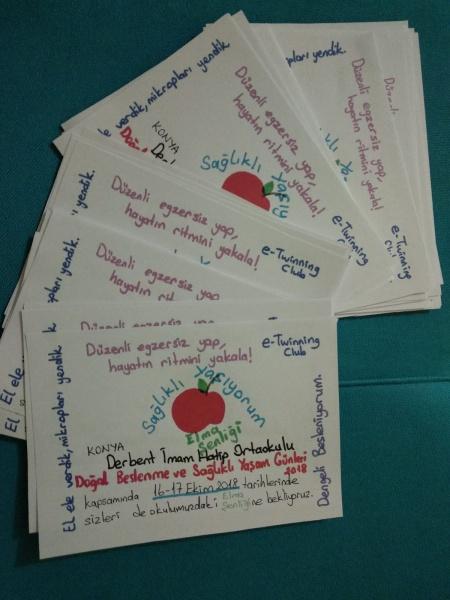 Düzenli egzersiz yap,
hayatın ritmini yakala!
e-Twinning
Club
El ele verdik, mikropları yendik
Sağlıklı Yaşıyorum
Elma
Şenliği
KONYA
Derbent İmam Hatip Ortaokulu
Doğal Beslenme ve Sağlıklı Yaşam Günleri
2018
kapsamında 16-17 Ekim 2018 tarihlerinde
sizleri de okulumuzdaki Elma
Şenliğine bekliyoruz.
Dengeli Besleniyorum.
Düzenli egzersiz yap,
Düzenli egzersiz yap,
hayatın ritmini yap
Düzenli egzersiz yap,
hayatın ritmini yakala!
e-Twinning
Club
yendik.
mikropları yendik.
El ele
El ele verdik, mikropları yendik
Düzenli egzersiz yap,
hayatın ritmini yakala!
Sağlıklı Yaşıy
KONYA
e-Twinning
Club
mikropları yendik.
Düzenli egzersiz yap,
hayatın ritmini yakala!
e-Twinning
Club